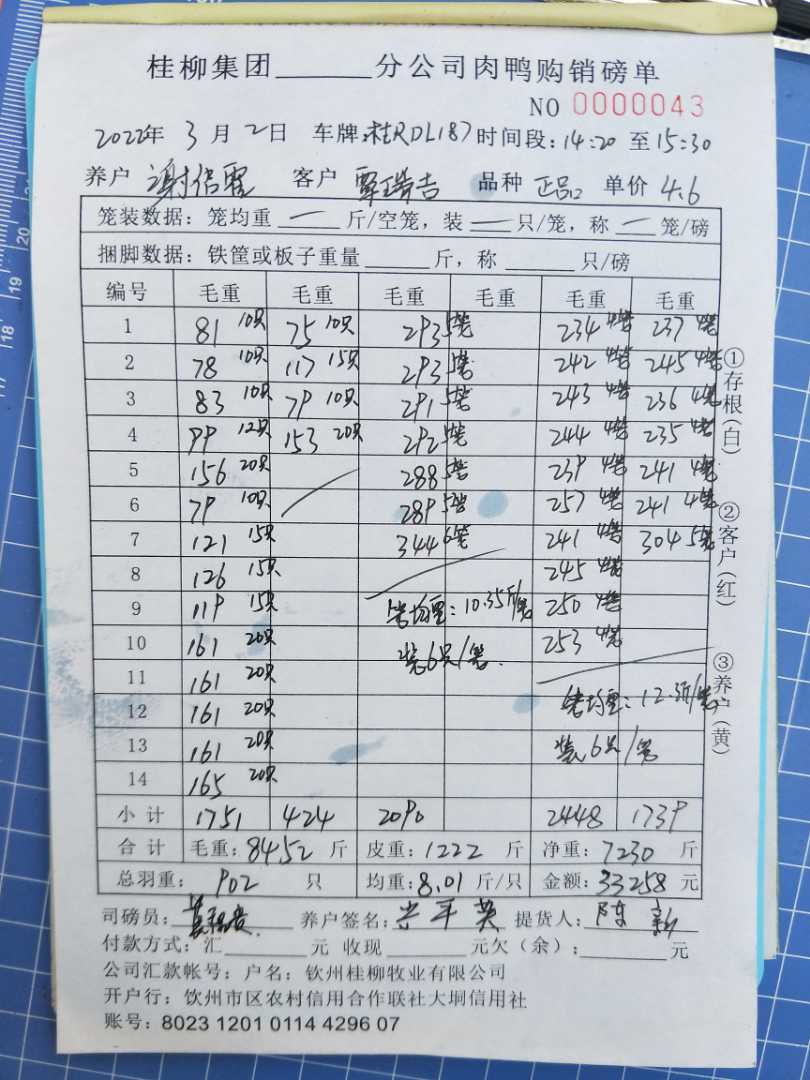 桂柳集团______分公司肉鸭购销磅单
NO 0000043
2022年 3月 2日 车牌:桂RDL187 时间段:14:20 至 15:30
养户 谢信 客户 覃瑞吉 品种 正品 单价 4.6
笼装数据:笼均重 — 斤/空笼,装 — 只/笼,称 — 笼/磅
捆脚数据:铁筐或板子重量______斤,称______只/磅
编号 毛重 毛重 毛重 毛重 毛重 毛重
1 81 10只 75 10只 293 5笼 234 4笼 237 4笼
2 78 10只 117 15只 293 5笼 242 4笼 245 4笼
3 83 10只 79 10只 291 5笼 243 4笼 236 4笼
4 99 12只 153 20只 292 5笼 244 4笼 235 4笼
5 156 20只 288 5笼 239 4笼 241 4笼
6 79 10只 289 5笼 257 4笼 241 4笼
7 121 15只 344 6笼 241 4笼 304 5笼
8 126 15只 245 4笼
9 119 15只 笼均重:10.35斤/笼 250 4笼
10 161 20只 装6只/笼. 253 4笼
11 161 20只
12 161 20只 笼均重:12.3斤/笼
13 161 20只 装6只/笼
14 165 20只
小计 1751 424 2090 2448 1739
合计 毛重:8452 斤 皮重:1222 斤 净重:7230 斤
总羽重: 902 只 均重:8.01 斤/只 金额:33258 元
司磅员: 养户签名: 英 提货人:陈新
付款方式:汇______元 收现______元欠(余):______元
公司汇款帐号:户名:钦州桂柳牧业有限公司
开户行:钦州市区农村信用合作联社大垌信用社
账号:8023 1201 0114 4296 07
①存根(白)
②客户(红)
③养户(黄)